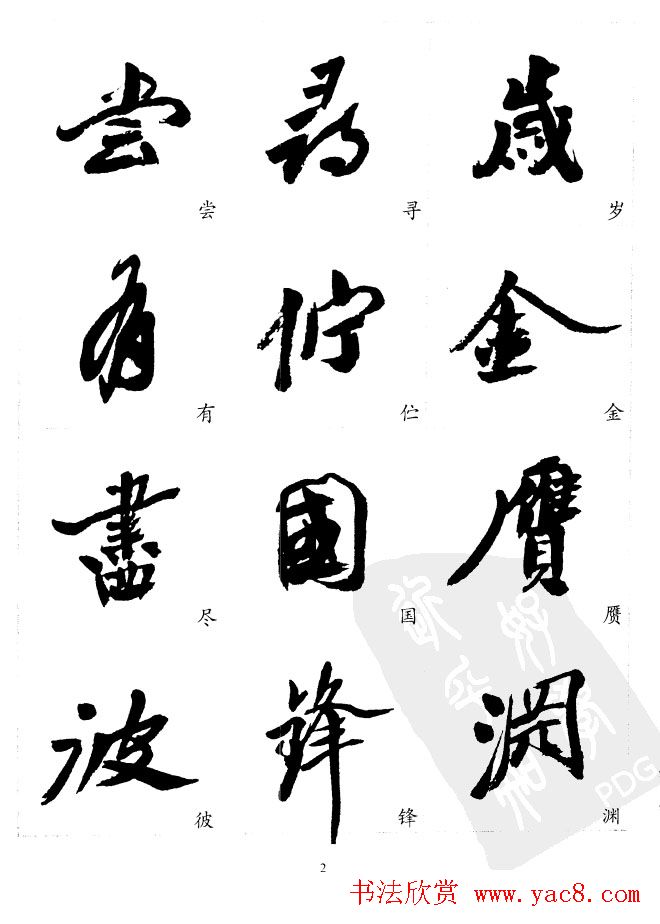 尝 尋 歲
尝 寻 岁
有 佇 金
有 伫 金
盡 國 贗
尽 国 赝
彼 鋒 淵
彼 锋 渊
PDG
2
书法欣赏 www.yac8.com